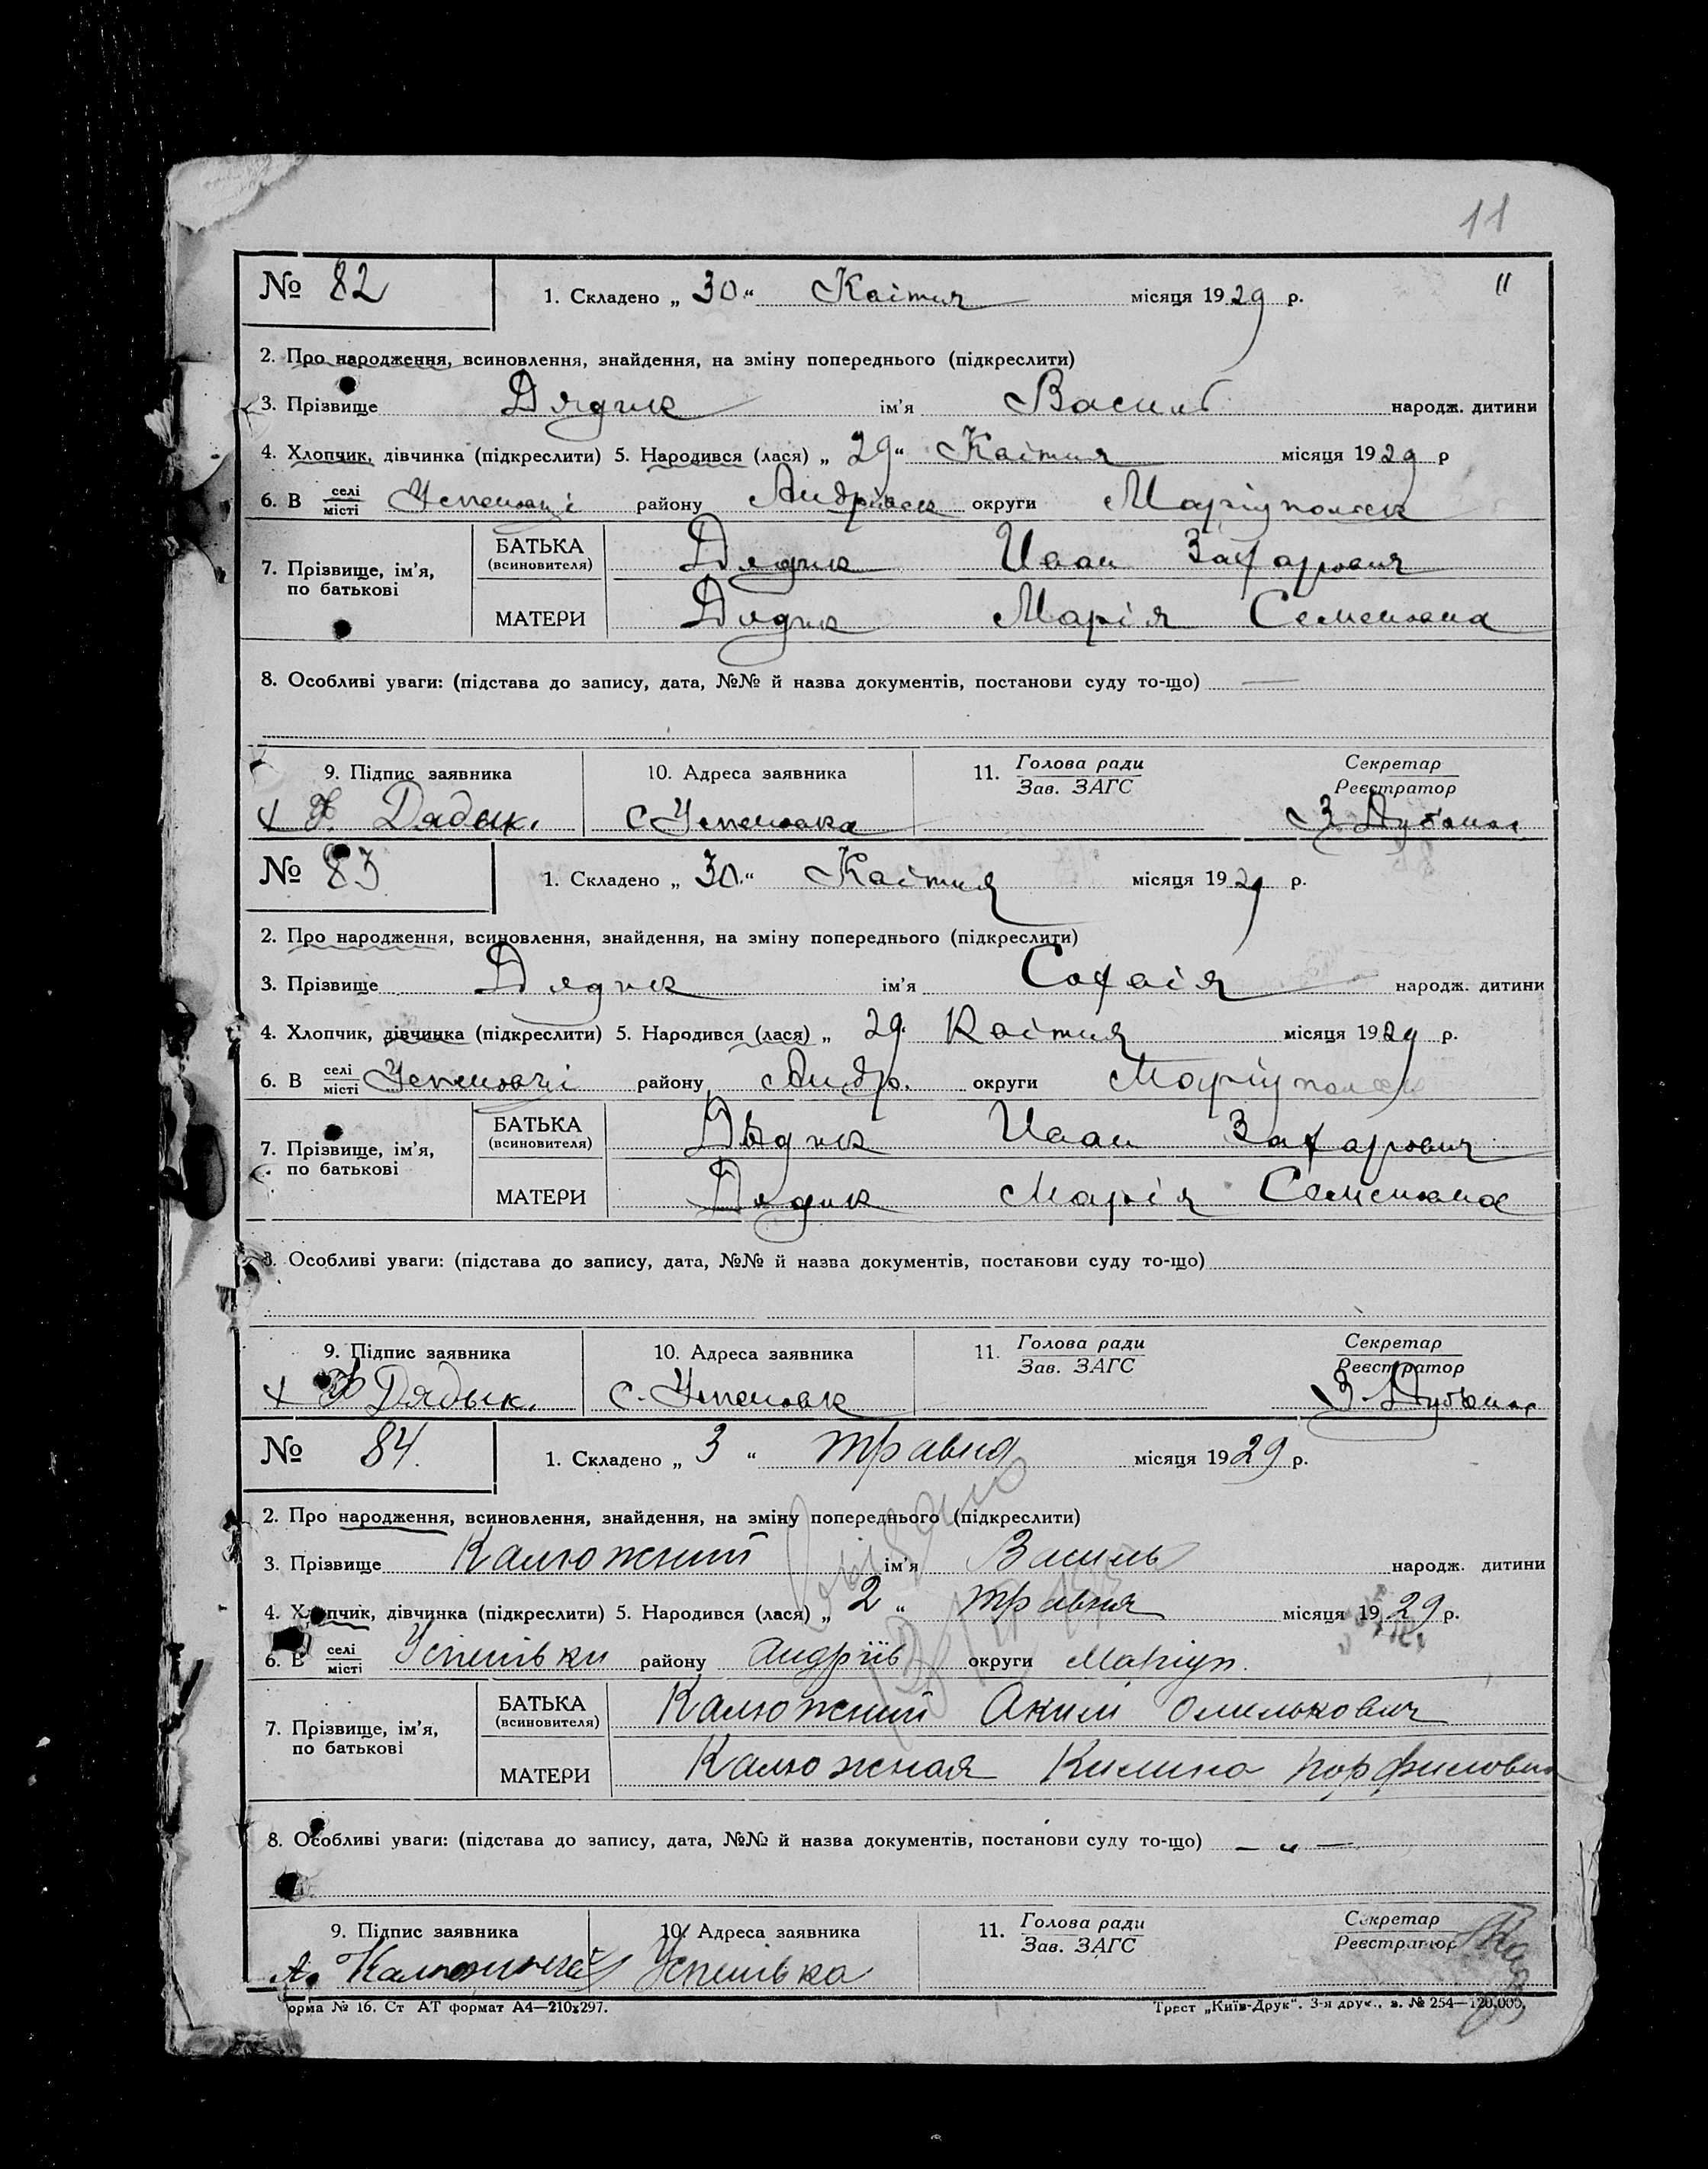 11
№ 82 1. Складено „ 30 “ Квітня місяця 1929 р. "
2. Про народження, всиновлення, знайдення, на зміну попереднього (підкреслити)
3. Прізвище Дядик ім'я Василь народж. дитини
4. Хлопчик, дівчинка (підкреслити) 5. Народився (лася) „ 29 “ Квітня місяця 1929 р
6. В селі місті Успеновці району Андріївськ округи Маріупольськ
7. Прізвище, ім'я, по батькові БАТЬКА (всиновителя) Дядик Иван Захарович
МАТЕРИ Дядик Марія Семеновна
8. Особливі уваги: (підстава до запису, дата, №№ й назва документів, постанови суду то-що) —
9. Підпис заявника 10. Адреса заявника 11. Голова ради Зав. ЗАГС Секретар Реєстратор
Дядык. с Успеновка З.
№ 83 1. Складено „ 30 “ Квітня місяця 1929 р.
2. Про народження, всиновлення, знайдення, на зміну попереднього (підкреслити)
3. Прізвище Дядик ім'я Софія народж. дитини
4. Хлопчик, дівчинка (підкреслити) 5. Народився (лася) „ 29 Квітня місяця 1929 р.
6. В селі місті Успеновці району Андр. округи Маріупольськ
7. Прізвище, ім'я, по батькові БАТЬКА (всиновителя) Дядик Иван Захарович
МАТЕРИ Дядик Марія Семеновна
8. Особливі уваги: (підстава до запису, дата, №№ й назва документів, постанови суду то-що)
9. Підпис заявника 10. Адреса заявника 11. Голова ради Зав. ЗАГС Секретар Реєстратор
Дядык. с. Успеновк З.
№ 84. 1. Складено „ 3 “ травня місяця 1929 р.
2. Про народження, всиновлення, знайдення, на зміну попереднього (підкреслити)
3. Прізвище Калюжний ім'я Василь народж. дитини
4. Хлопчик, дівчинка (підкреслити) 5. Народився (лася) „ 2 “ травня місяця 1929 р.
6. В селі місті Успенівки району Андріїв округи Маріуп.
7. Прізвище, ім'я, по батькові БАТЬКА (всиновителя) Калюжний Аким Омелькович
МАТЕРИ Калюжная Килина Порфиловна
8. Особливі уваги: (підстава до запису, дата, №№ й назва документів, постанови суду то-що) — „ —
9. Підпис заявника 10. Адреса заявника 11. Голова ради Зав. ЗАГС Секретар Реєстратор
А. Калюжний Успенівка
орма № 16. Ст АТ формат А4—210х297. Трест „Київ-Друк“. 3-я друк., з. № 254—120.000.